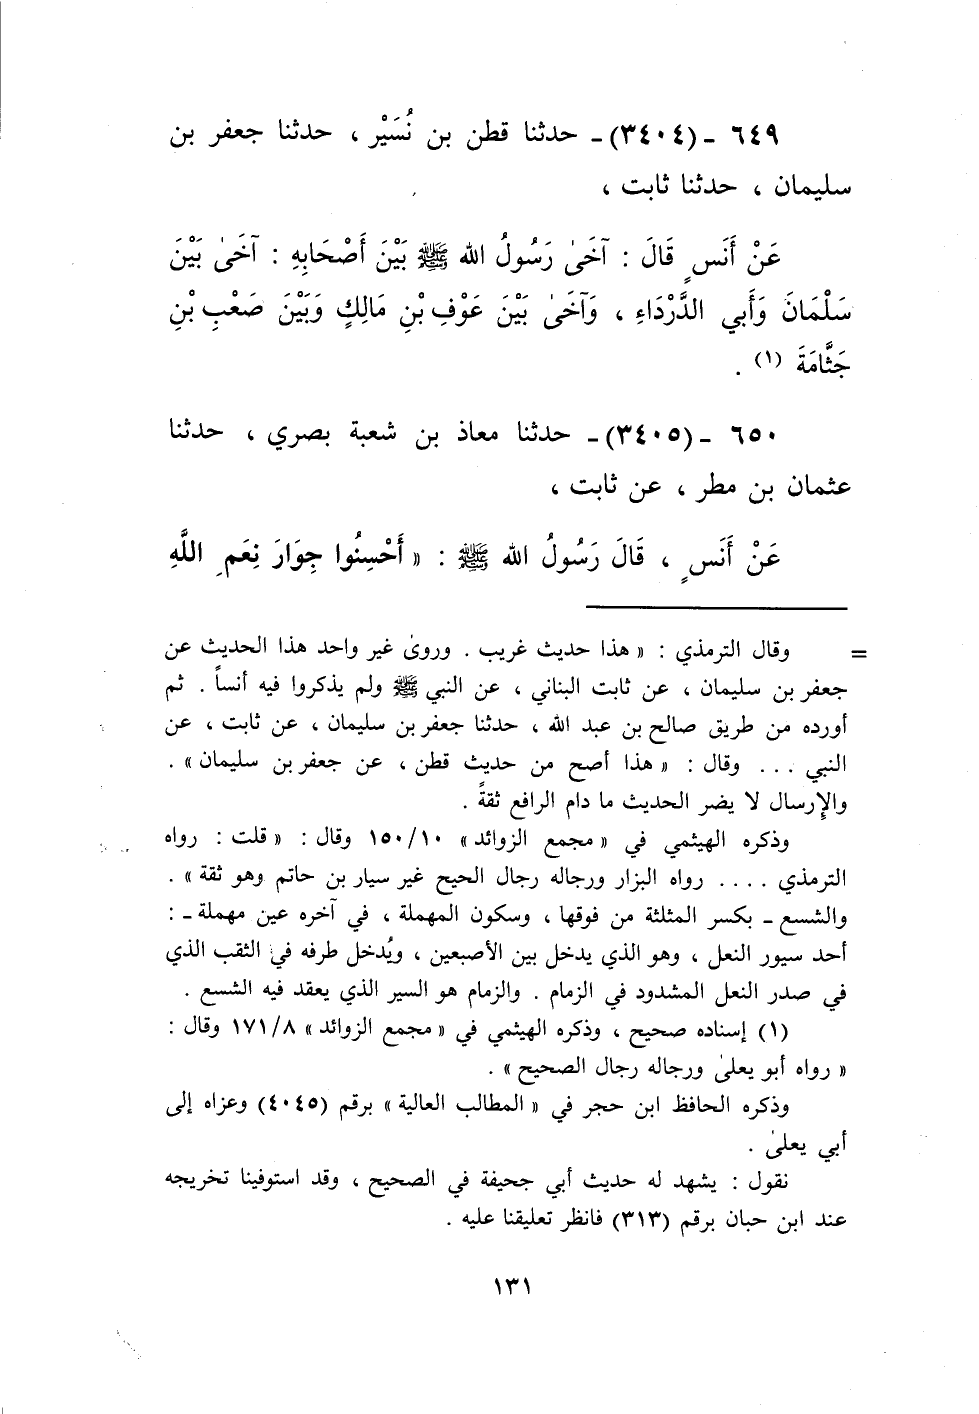 ٦٤٩ ـ (٣٤٠٤)ـ حدثنا قطن بن نُسَيْر ، حدثنا جعفر بن
سليمان ، حدثنا ثابت ،
عَنْ أَنَسٍ قَالَ : آخَىٰ رَسُولُ الله ﷺ بَيْنَ أَصْحَابِهِ : آخَىٰ بَيْنَ
سَلْمَانَ وَأَبي الدَّرْدَاءِ ، وَآخَىٰ بَيْنَ عَوْفِ بْنِ مَالِكٍ وَبَيْنَ صَعْبِ بْنِ
جَثَّامَةَ (١) .
٦٥٠ ـ (٣٤٠٥)ـ حدثنا معاذ بن شعبة بصري ، حدثنا
عثمان بن مطر ، عن ثابت ،
عَنْ أَنَسٍ ، قَالَ رَسُولُ الله ﷺ : « أَحْسِنُوا جِوَارَ نِعَمِ اللَّهِ
= وقال الترمذي : « هذا حديث غريب . وروىٰ غير واحد هذا الحديث عن
جعفر بن سليمان ، عن ثابت البناني ، عن النبي ﷺ ولم يذكروا فيه أنساً . ثم
أورده من طريق صالح بن عبد الله ، حدثنا جعفر بن سليمان ، عن ثابت ، عن
النبي ... وقال : « هذا أصح من حديث قطن ، عن جعفر بن سليمان » .
والإرسال لا يضر الحديث ما دام الرافع ثقةً .
وذكره الهيثمي في « مجمع الزوائد » ١٥٠/١٠ وقال : « قلت : رواه
الترمذي .... رواه البزار ورجاله رجال الحيح غير سيار بن حاتم وهو ثقة » .
والشسع ـ بكسر المثلثة من فوقها ، وسكون المهملة ، في آخره عين مهملة ـ :
أحد سيور النعل ، وهو الذي يدخل بين الأصبعين ، ويُدخل طرفه في الثقب الذي
في صدر النعل المشدود في الزمام . والزمام هو السير الذي يعقد فيه الشسع .
(١) إسناده صحيح ، وذكره الهيثمي في « مجمع الزوائد » ١٧١/٨ وقال :
« رواه أبو يعلىٰ ورجاله رجال الصحيح » .
وذكره الحافظ ابن حجر في « المطالب العالية » برقم (٤٠٤٥) وعزاه إلى
أبي يعلىٰ .
نقول : يشهد له حديث أبي جحيفة في الصحيح ، وقد استوفينا تخريجه
عند ابن حبان برقم (٣١٣) فانظر تعليقنا عليه .
١٣١